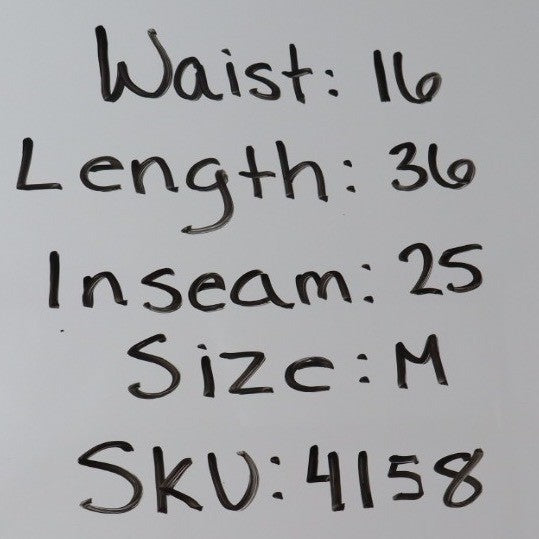 Waist: 16
Length: 36
Inseam: 25
Size: M
SKU: 4158